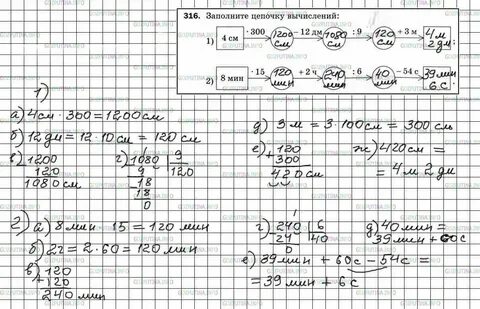 316. Заполните цепочку вычислений:
1) 4 см · 300 1200 см - 12 дм 1080 см : 9 120 см + 3 м 4 м 2 дм;
2) 8 мин · 15 120 мин + 2 ч 240 мин : 6 40 мин - 54 с 39 мин 6 с.
1)
а) 4 см · 300 = 1200 см
б) 12 дм = 12 · 10 см = 120 см
в) 1200
120
1080 см
г) 1080 9
9 120
18
18
0
д) 3 м = 3 · 100 см = 300 см
е) 120
+ 300
420 см
ж) 420 см =
= 4 м 2 дм
2) а) 8 мин 15 = 120 мин
б) 2 ч = 2 · 60 = 120 мин
в) 120
+ 120
240 мин
г) 240 6
24 40
0
д) 40 мин =
39 мин + 60 с
е) 39 мин + 60 с - 54 с =
= 39 мин + 6 с